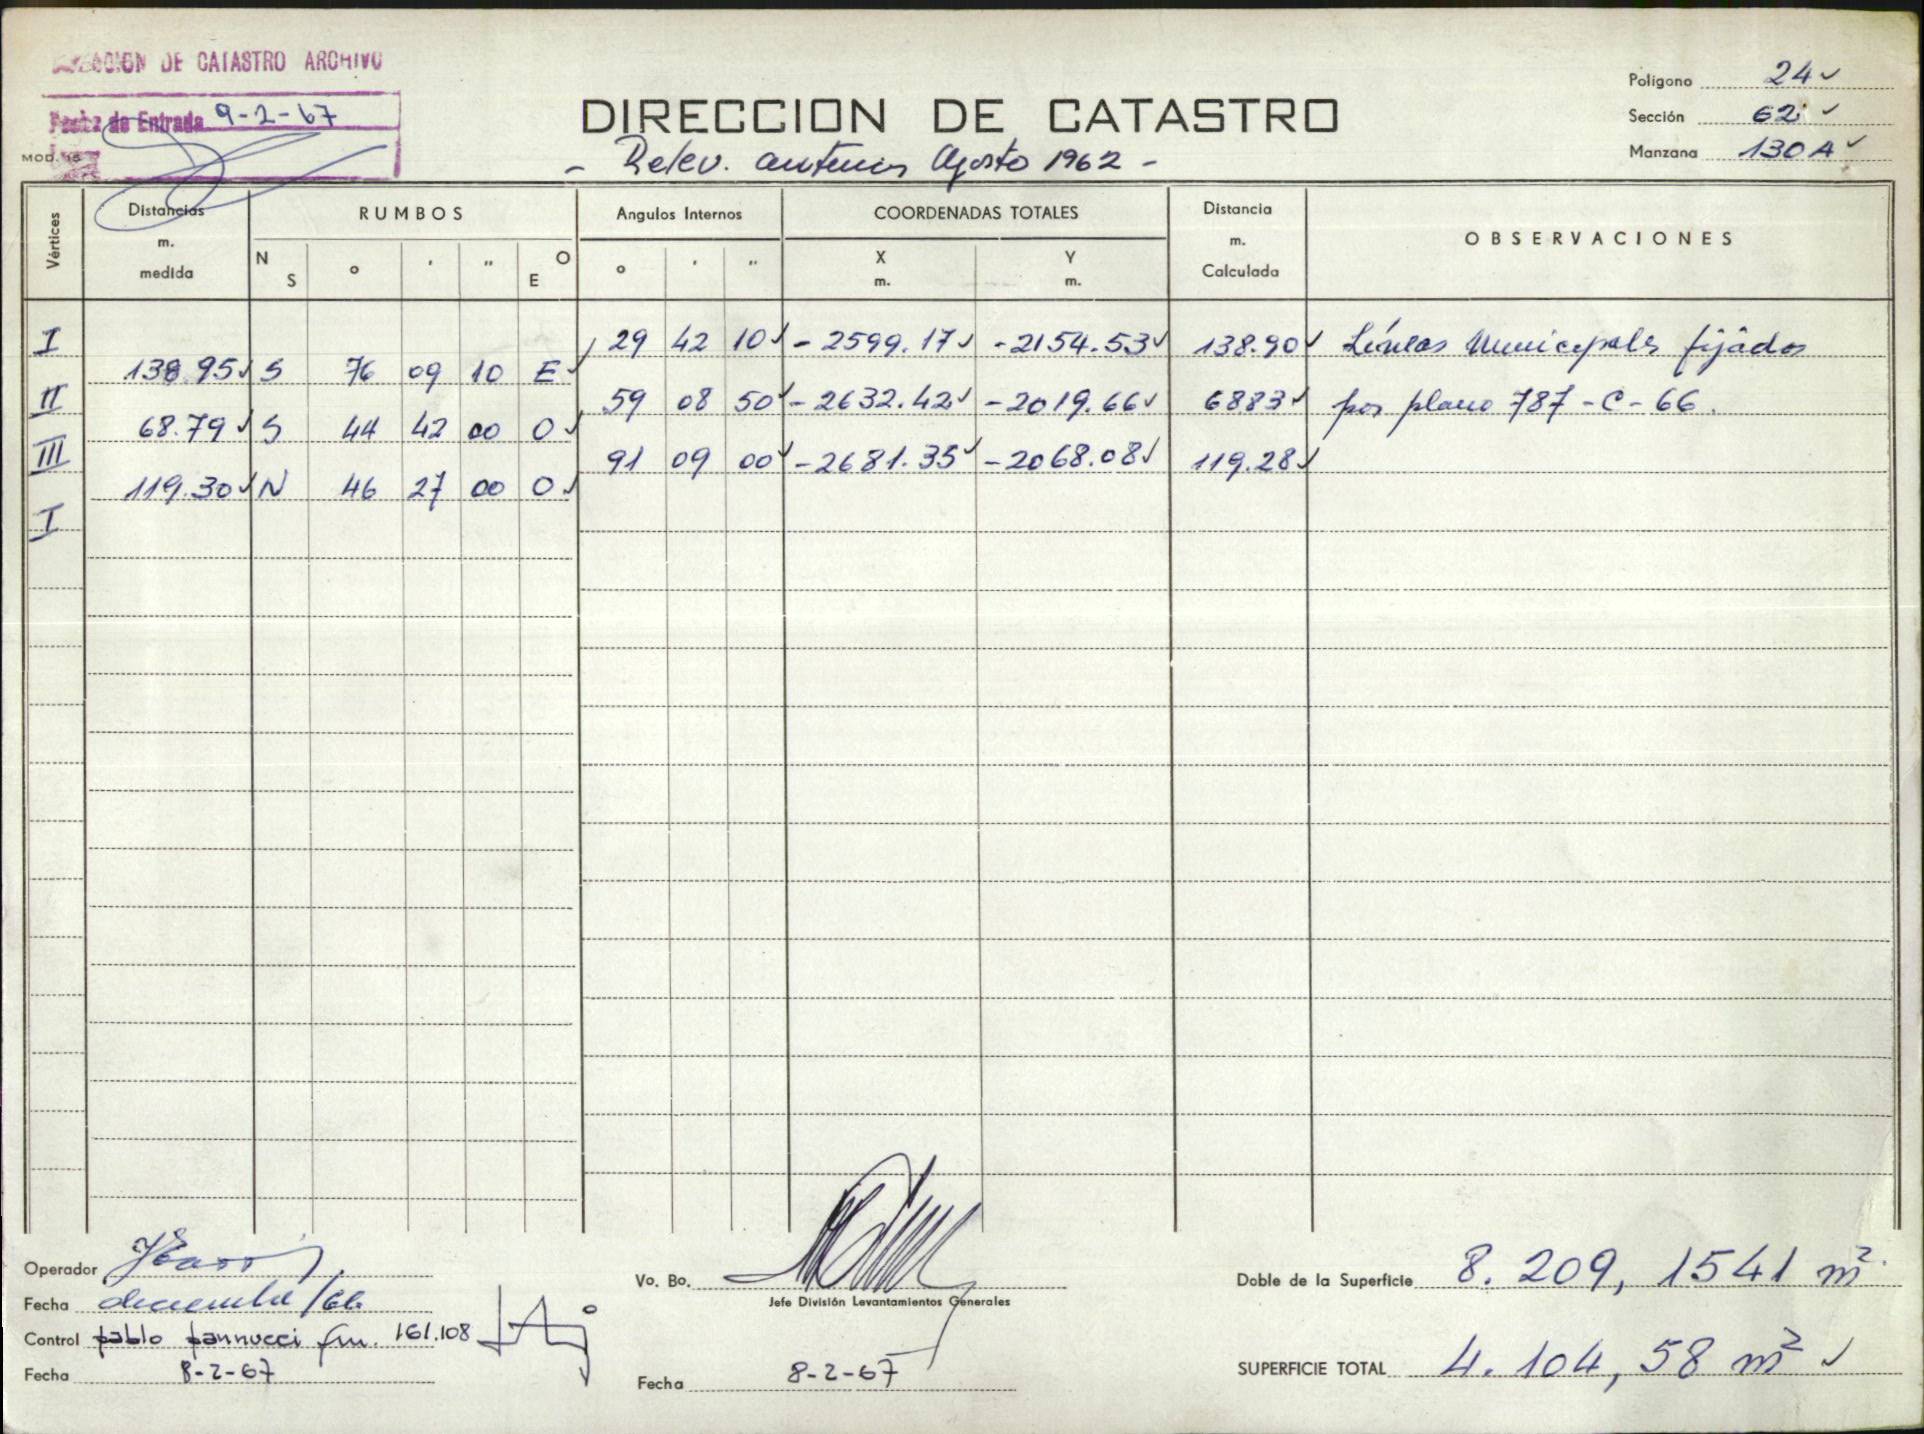 DIRECCION DE CATASTRO ARCHIVO
Fecha de Entrada 9-2-67
MOD. 15
DIRECCION DE CATASTRO
- Relev. anterior Agosto 1962 -
Polígono 24 ✓
Sección 62 ✓
Manzana 130 A ✓
Vértices
Distancias m. medida
RUMBOS
N S o ' " O E
Angulos Internos
o ' "
COORDENADAS TOTALES
X m. Y m.
Distancia m. Calculada
OBSERVACIONES
I 29 42 10 ✓ - 2599.17 ✓ - 2154.53 ✓ 138.90 ✓ Líneas Municipales fijados
138.95 ✓ S 76 09 10 E ✓
II 59 08 50 ✓ - 2632.42 ✓ - 2019.66 ✓ 6883 ✓ por plano 787 - C - 66.
68.79 ✓ S 44 42 00 O ✓
III 91 09 00 ✓ - 2681.35 ✓ - 2068.08 ✓ 119.28 ✓
119.30 ✓ N 46 27 00 O ✓
I
Operador
Fecha diciembre/66
Control pablo pannucci fm. 161.108
Fecha 8-2-67
Vo. Bo.
Jefe División Levantamientos Generales
Fecha 8-2-67
Doble de la Superficie 8.209,1541 m²
SUPERFICIE TOTAL 4.104,58 m² ✓